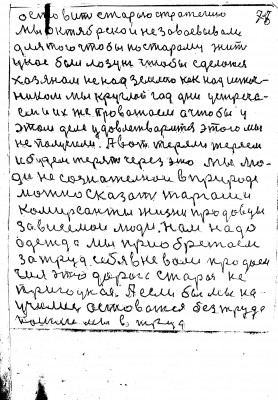 оставить старою стратегию
мы октябрской не завоевывали
для того чтобы по старому жит
у нас был лозунг чтобы сделатся
хозяином не над землею как над источ
ником мы круглой год дни встреча
ем и их же провожаем а чтобы у
этом деле удовлетварится этого мы
не получили. А вот теряли теряем
и будем терят через это мы лю
ди не сознателной в природе
можно сказат торгаши
комерсанты жизни продовцы
зависемой люди. Нам надо
одежда мы приобретаем
за труд себя в неволи продаем
сил это дорога стара не
пригодная. А если бы мы на
училис остановатся без труда
пошли мы в труд